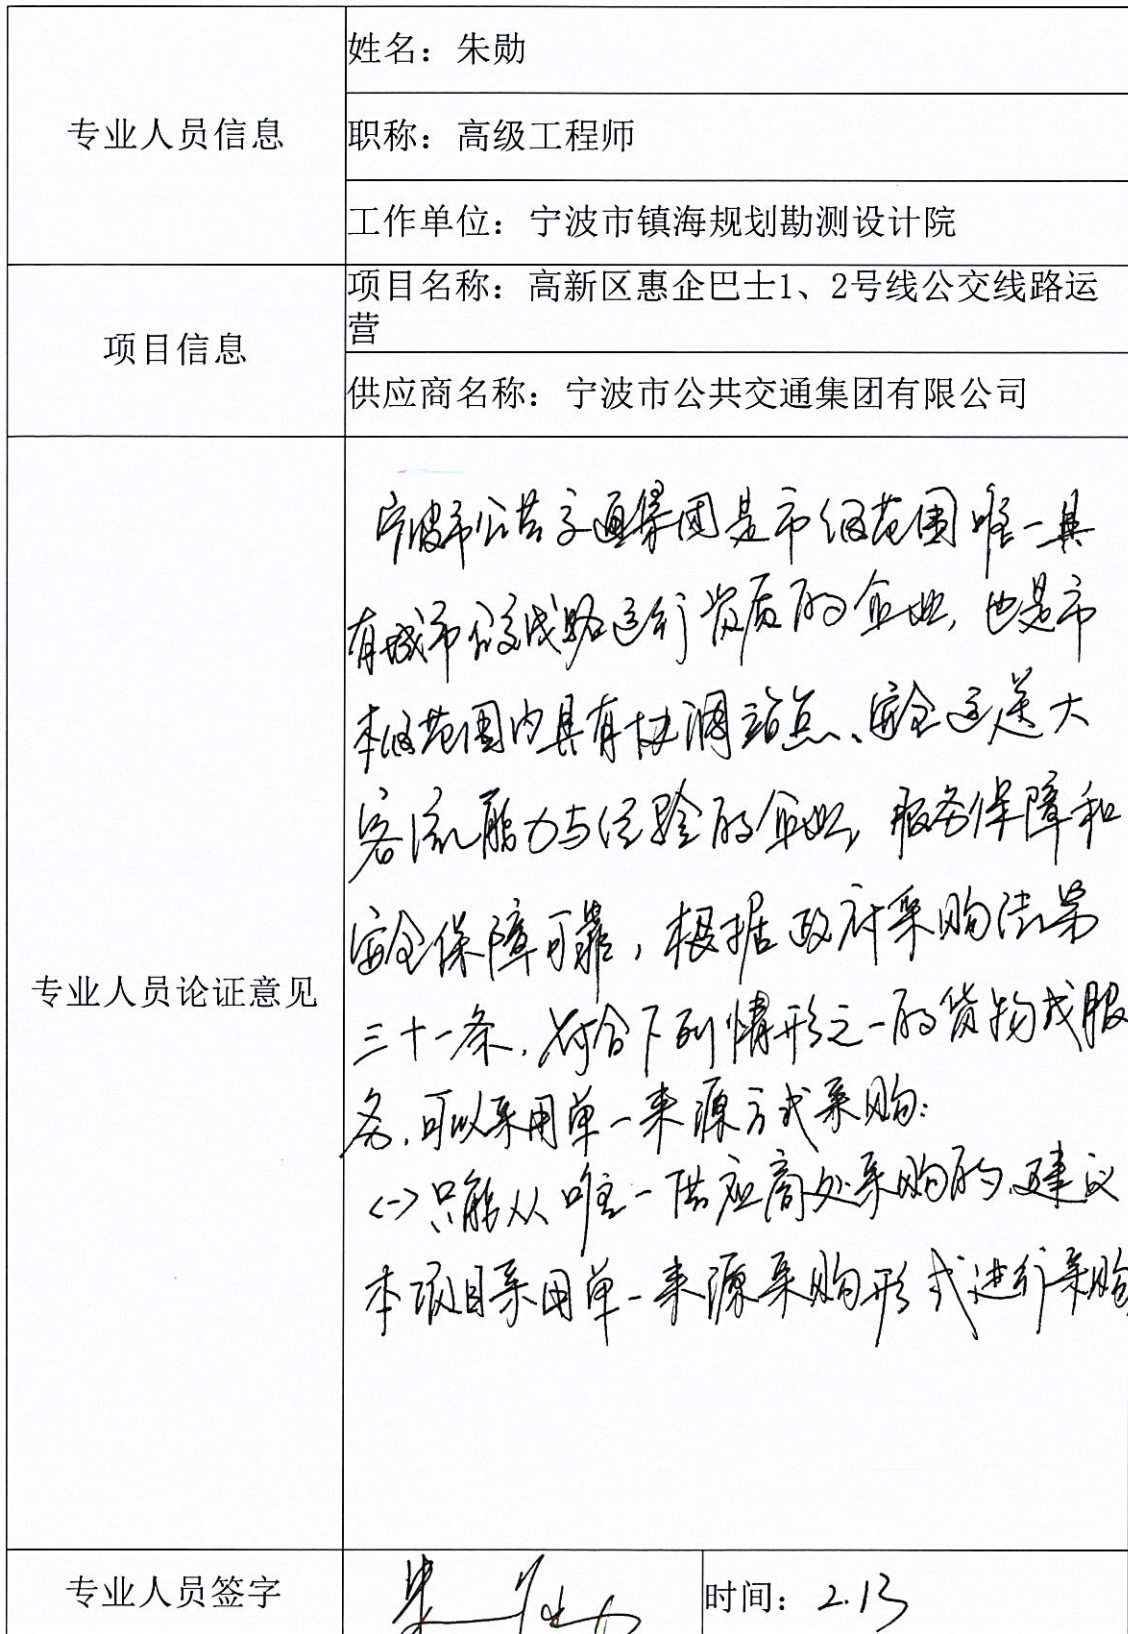 专业人员信息
姓名：朱勋
职称：高级工程师
工作单位：宁波市镇海规划勘测设计院
项目信息
项目名称：高新区惠企巴士1、2号线公交线路运
营
供应商名称：宁波市公共交通集团有限公司
专业人员论证意见
宁波市公共交通集团是市级范围唯一具
有城市公交线路运行资质的企业，也是市
本级范围内具有协调站点、安全运送大
客流能力与经验的企业，服务保障和
安全保障可靠，根据政府采购法第
三十一条，符合下列情形之一的货物或服
务，可以采用单一来源方式采购：
<一>只能从唯一供应商处采购的，建议
本项目采用单一来源采购形式进行采购
专业人员签字
朱勋
时间：2.13